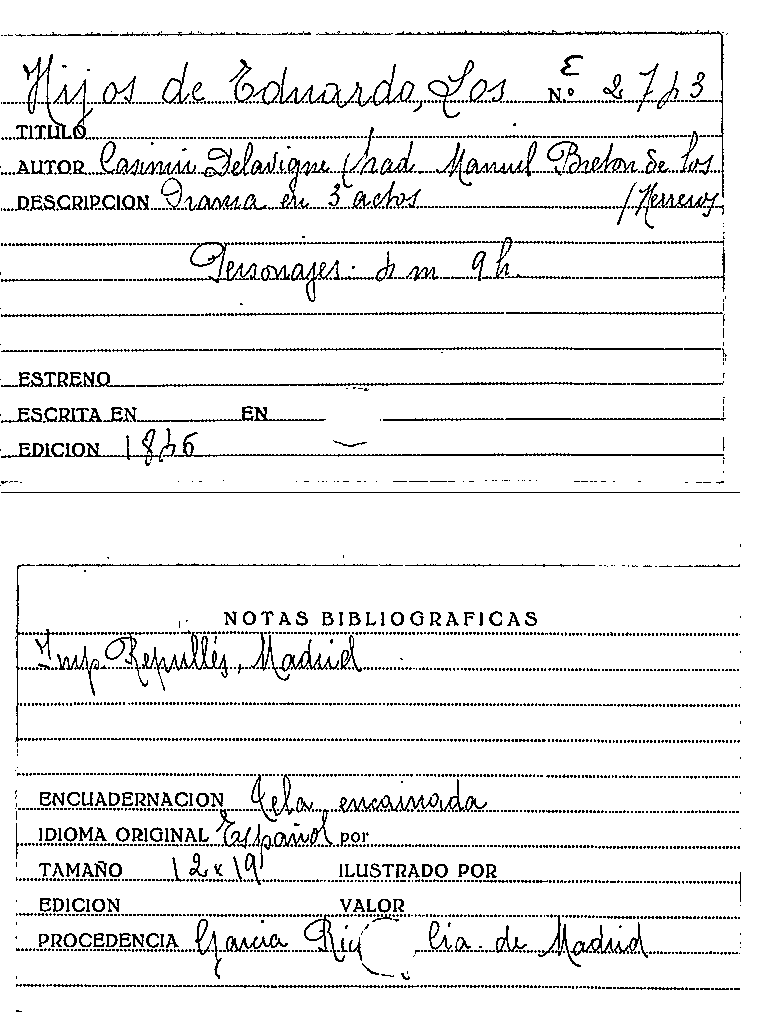 Hijos de Eduardo, Los E N.º 2743
TITULO
AUTOR Casimir Delavigne (trad. Manuel Breton de los
DESCRIPCION Drama en 3 actos / Herreros
Personajes: 4 m 9 h.
ESTRENO
ESCRITA EN EN
EDICION 1846
NOTAS BIBLIOGRAFICAS
Imp. Repullés, Madrid
ENCUADERNACION Tela encarnada
IDIOMA ORIGINAL Español por
TAMAÑO 12 x 19 ILUSTRADO POR
EDICION VALOR
PROCEDENCIA Garcia Rico Cia. de Madrid